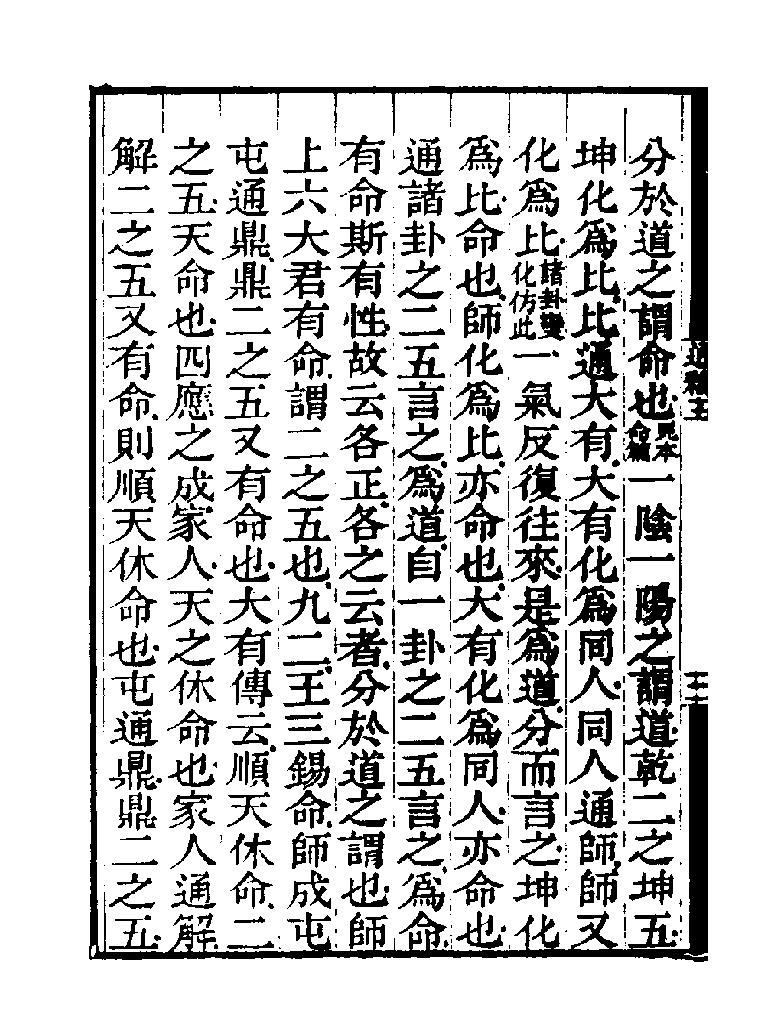 分於道之謂命也見本命篇一陰一陽之謂道乾二之坤五
坤化爲比比通大有大有化爲同人同人通師師又
化爲比諸卦變化仿此一氣反復往來是爲道分而言之坤化
爲比命也師化爲比亦命也大有化爲同人亦命也
通諸卦之二五言之爲道自一卦之二五言之爲命
有命斯有性故云各正各之云者分於道之謂也師
上六大君有命謂二之五也九二王三錫命師成屯
屯通鼎鼎二之五又有命也大有傳云順天休命二
之五天命也四應之成家人天之休命也家人通解
解二之五又有命則順天休命也屯通鼎鼎二之五
通釋五